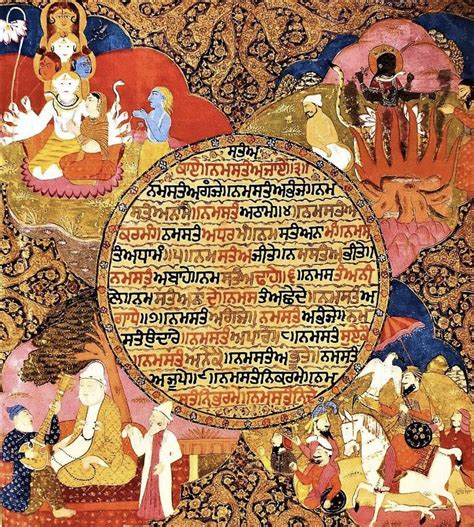 ਸਤੰਅ
ਕਾਏ॥ਨਮਸਤੰਅਜਾਏ॥੩॥
ਨਮਸਤੰਅਗੰਜੇ॥ਨਮਸਤੰਅਭੰਜੇ॥ਨਮ
ਸਤੰਅਨਾਮੇ॥ਨਮਸਤੰਅਠਾਮੇ॥੪॥ਨਮਸਤੰਅ
ਕਰਮੰ॥ਨਮਸਤੰਅਧਰਮੰ॥ਨਮਸਤੰਅਨਾਮੰ॥ਨਮਸ
ਤੰਅਧਾਮੰ॥੫॥ਨਮਸਤੰਅਜੀਤੇ॥ਨਮਸਤੰਅਭੀਤੇ॥
ਨਮਸਤੰਅਬਾਹੇ॥ਨਮਸਤੰਅਢਾਹੇ॥੬॥ਨਮਸਤੰਅਨੀ
ਲੇ॥ਨਮਸਤੰਅਨਾਦੇ॥ਨਮਸਤੰਅਛੇਦੇ॥ਨਮਸਤੰਅ
ਗਾਧੇ॥੭॥ਨਮਸਤੰਅਗੰਜੇ॥ਨਮਸਤੰਅਭੰਜੇ॥ਨਮ
ਸਤੰਉਦਾਰੇ॥ਨਮਸਤੰਅਪਾਰੇ॥੮॥ਨਮਸਤੰ
ਨਮਸਤੰਅਨੇਕੈ॥ਨਮਸਤੰਅਭੂਤੇ॥ਨਮਸਤੰ
ਅਜੂਪੇ॥੯॥ਨਮਸਤੰਨ੍ਰਿਕਰਮੇ॥ਨਮ
ਸਤੰਨ੍ਰਿਭਰਮੇ॥ਨਮਸਤੰਨ੍ਰਿਦੇ